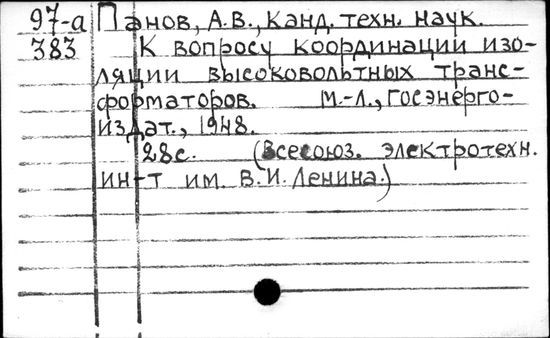 97-а Панов, А.В., канд. техн. наук.
383 К вопросу координации изо-
ляции высоковольтных транс-
форматоров. М.-Л., Госэнерго-
издат., 1948.
28с. (Всесоюз. электротехн.
ин-т им. В.И. Ленина.)